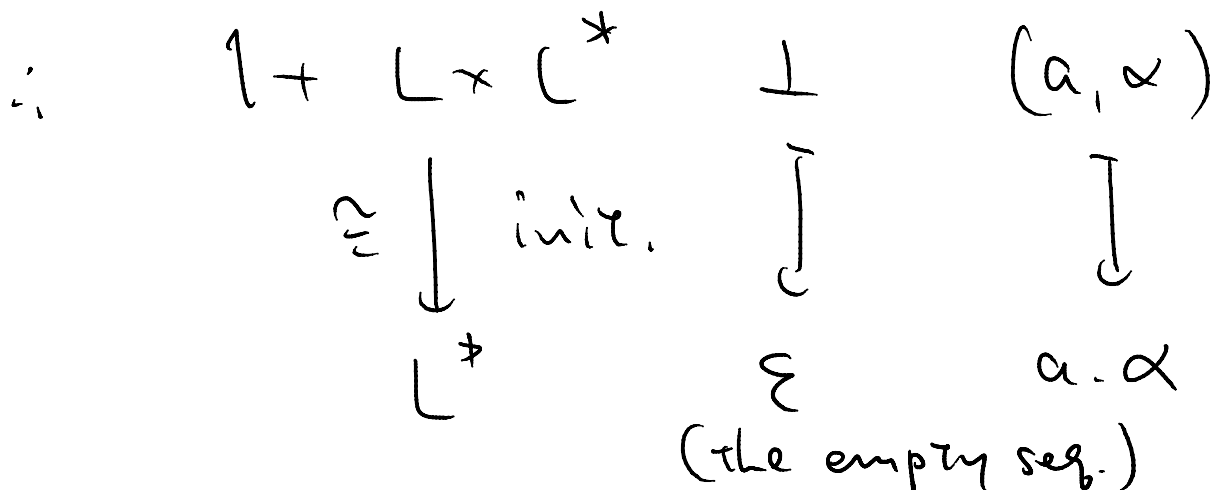 ∴ 1 + L × L* ⊥ (a, α)
≅ ↓ init. ↧ ↧
L* ε a.α
(the empty seq.)